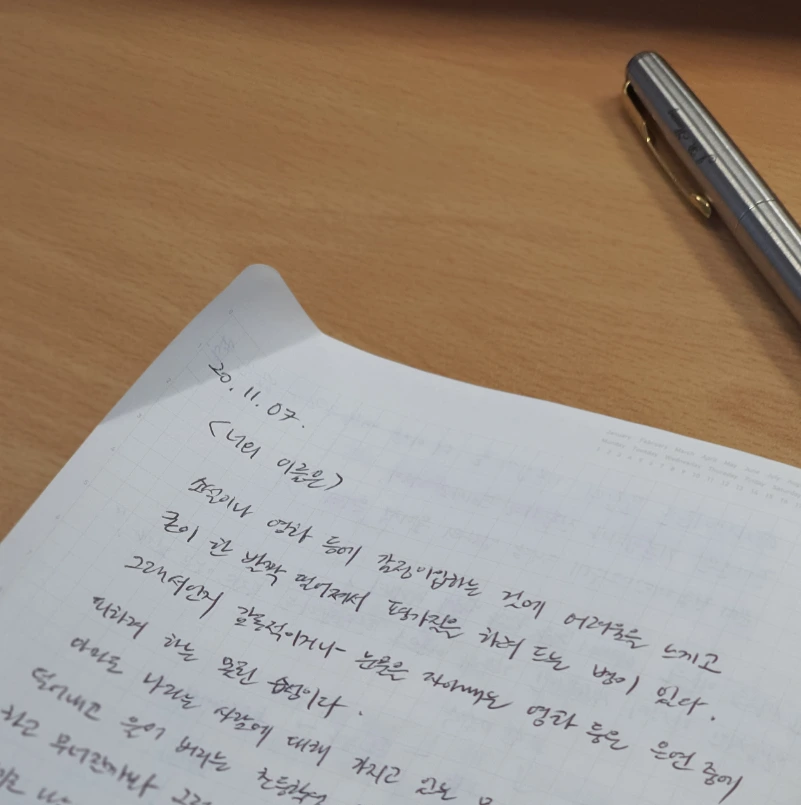 20. 11. 07.
<너의 이름은>
소설이나 영화 등에 감정이입하는 것에 어려움을 느끼고
굳이 한 발짝 떨어져서 평가질을 하려 드는 병이 있다.
그래서인지 감동적이거나 눈물을 자아내는 영화 등은 은연 중에
피하게 하는 몰린 습성이다.
아마도 나라는 사람에 대해 가지고 있는
덜어내고 울어 버리는 초등학생
하고 무너질까봐